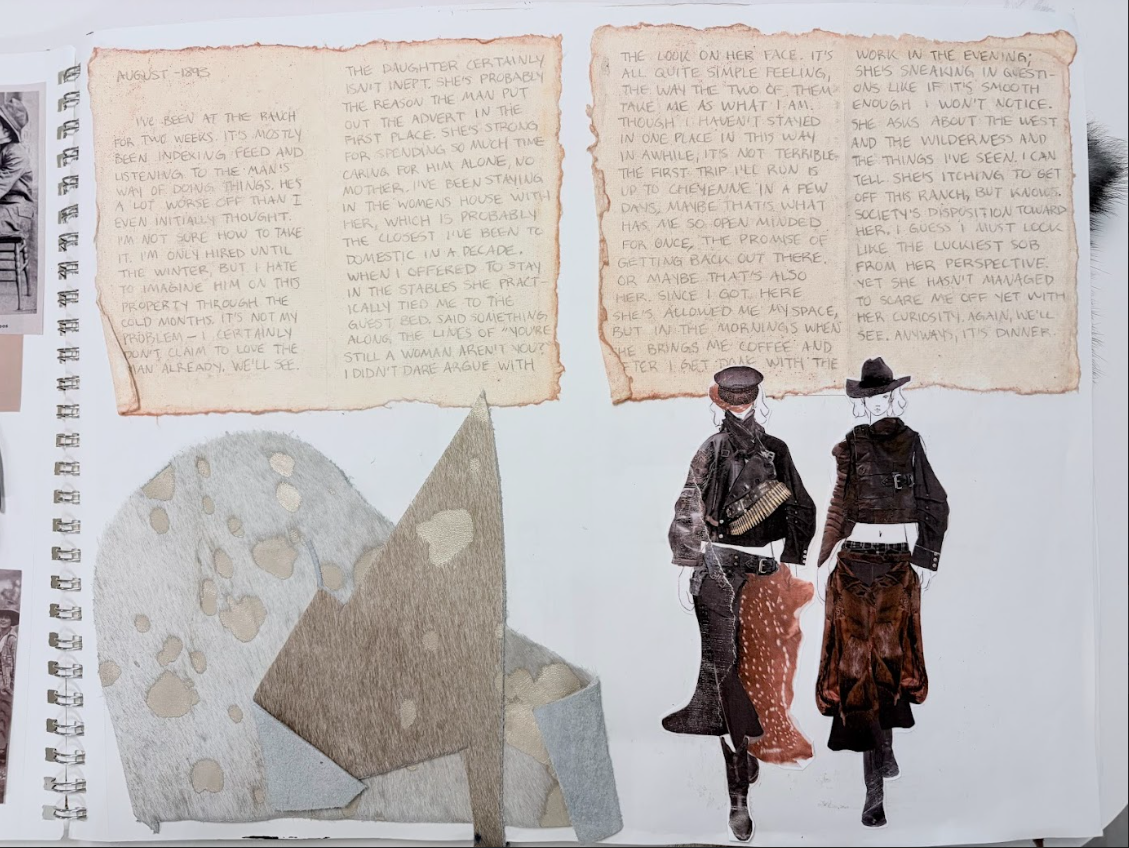 AUGUST - 1895
I'VE BEEN AT THE RANCH
FOR TWO WEEKS. IT'S MOSTLY
BEEN INDEXING FEED AND
LISTENING TO THE MAN'S
WAY OF DOING THINGS. HE'S
A LOT WORSE OFF THAN I
EVEN INITIALLY THOUGHT.
I'M NOT SURE HOW TO TAKE
IT. I'M ONLY HIRED UNTIL
THE WINTER, BUT I HATE
TO IMAGINE HIM ON THIS
PROPERTY THROUGH THE
COLD MONTHS. IT'S NOT MY
PROBLEM - I CERTAINLY
DON'T CLAIM TO LOVE THE
MAN ALREADY. WE'LL SEE.
THE DAUGHTER CERTAINLY
ISN'T INEPT. SHE'S PROBABLY
THE REASON THE MAN PUT
OUT THE ADVERT IN THE
FIRST PLACE. SHE'S STRONG
FOR SPENDING SO MUCH TIME
CARING FOR HIM ALONE, NO
MOTHER. I'VE BEEN STAYING
IN THE WOMENS HOUSE WITH
HER, WHICH IS PROBABLY
THE CLOSEST I'VE BEEN TO
DOMESTIC IN A DECADE.
WHEN I OFFERED TO STAY
IN THE STABLES SHE PRACT-
ICALLY TIED ME TO THE
GUEST BED. SAID SOMETHING
ALONG THE LINES OF "YOU'RE
STILL A WOMAN AREN'T YOU?
I DIDN'T DARE ARGUE WITH
THE LOOK ON HER FACE. IT'S
ALL QUITE SIMPLE FEELING,
THE WAY THE TWO OF THEM
TAKE ME AS WHAT I AM.
THOUGH I HAVEN'T STAYED
IN ONE PLACE IN THIS WAY
IN AWHILE, IT'S NOT TERRIBLE
THE FIRST TRIP I'LL RUN IS
UP TO CHEYENNE IN A FEW
DAYS, MAYBE THATS WHAT
HAS ME SO OPEN MINDED
FOR ONCE, THE PROMISE OF
GETTING BACK OUT THERE.
OR MAYBE THAT'S ALSO
HER. SINCE I GOT HERE
SHE'S ALLOWED ME MY SPACE,
BUT IN THE MORNINGS WHEN
HE BRINGS ME COFFEE AND
FTER I GET DONE WITH THE
WORK IN THE EVENING;
SHE'S SNEAKING IN QUESTI-
ONS LIKE IF IT'S SMOOTH
ENOUGH I WON'T NOTICE.
SHE ASKS ABOUT THE WEST
AND THE WILDERNESS AND
THE THINGS I'VE SEEN. I CAN
TELL SHE'S ITCHING TO GET
OFF THIS RANCH, BUT KNOWS
SOCIETY'S DISPOSITION TOWARD
HER. I GUESS I MUST LOOK
LIKE THE LUCKIEST SOB
FROM HER PERSPECTIVE.
YET SHE HASN'T MANAGED
TO SCARE ME OFF YET WITH
HER CURIOSITY. AGAIN, WE'LL
SEE. ANYWAYS, IT'S DINNER.